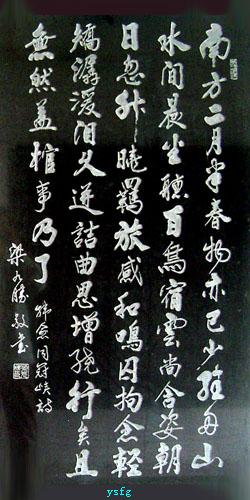 南方二月半春物亦已少維舟山
水間晨坐聽百鳥宿雲尚含姿朝
日忽升曉羈旅感和鳴囚拘念輕
矯潺湲泪久迸詰曲思增繞行矣且
無然蓋棺事乃了
韓愈同冠峽詩
梁 勝敬書
ysfg